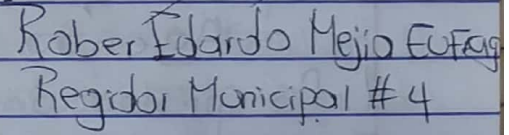 Rober Edardo Mejia
Regidor Municipal # 4